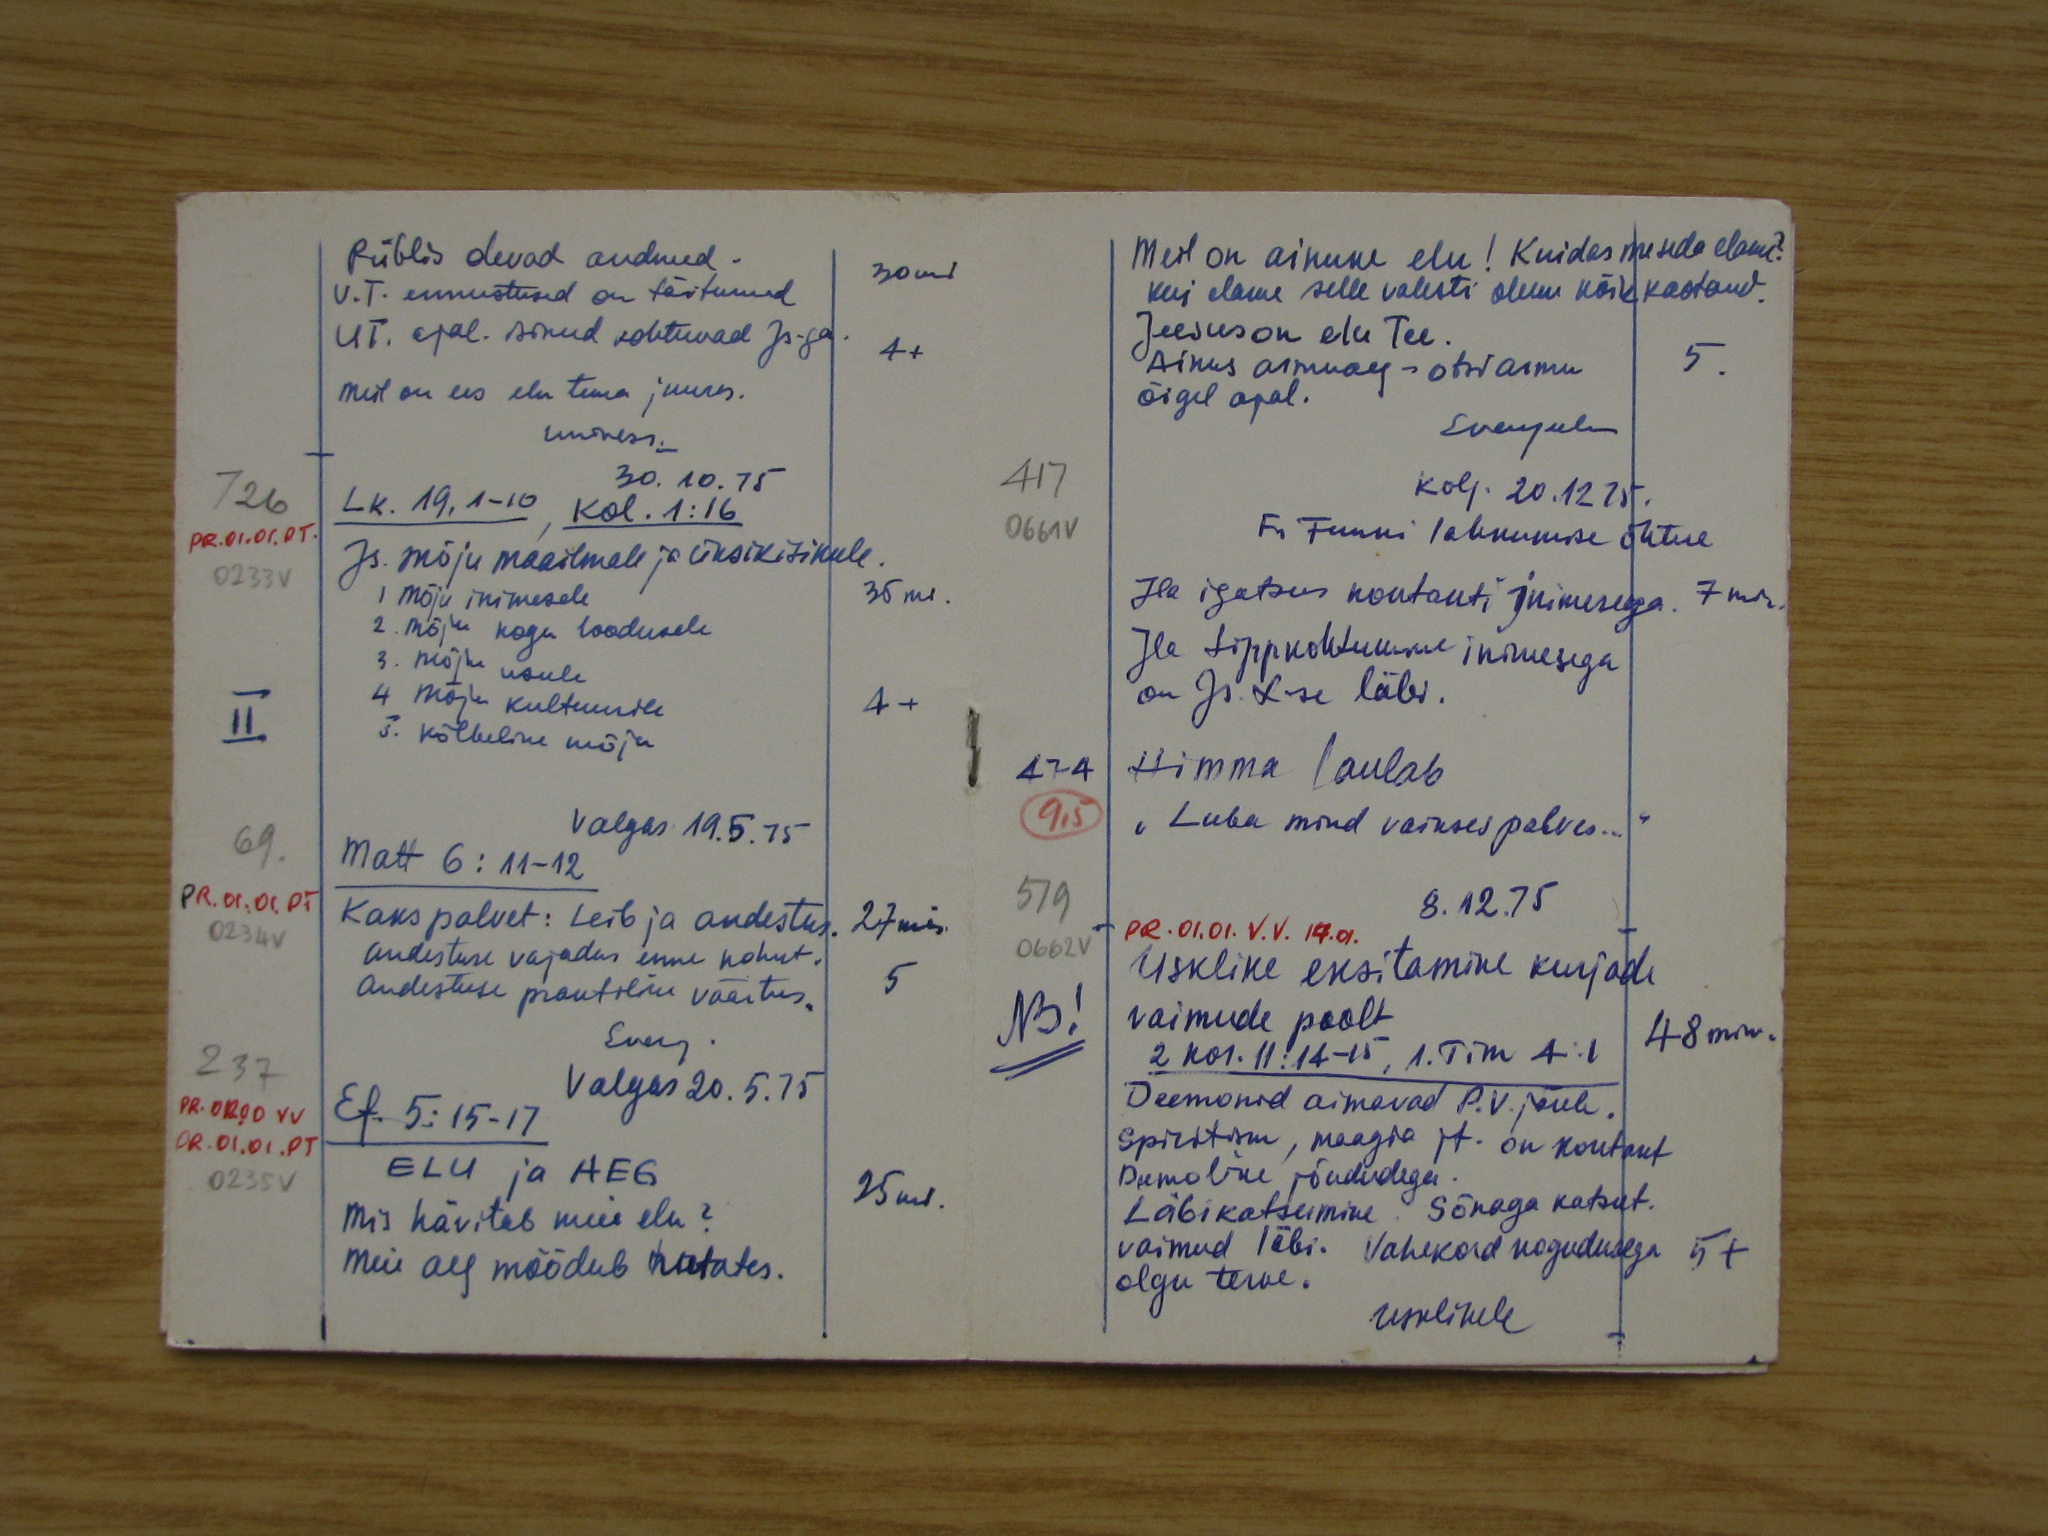 Piiblis olevad andmed.
30 min
V.T. ennustused on täitunud
UT. ajal. isikud kohtuvad Js-ga.
4+
Meil on ees elu tema juures.
univers.
30.10.75
726
Lk. 19, 1-10, Kol. 1:16
PR.01.01.PT.
0233V
Js. mõju maailmale ja üksikisikule.
1 Mõju inimesele
35 min.
2. Mõju kogu loodusele
3. Mõju usule
4 Mõju kultuurile
4+
II
5. kõlbeline mõju
Valgas 19.5.75
69.
Matt 6: 11-12
PR.01.01.PT
0234V
Kaks palvet: Leib ja andestus.
27 min.
Andestuse vajadus enne kohut.
Andestuse praktiline väärtus.
5
Evang.
Valgas 20.5.75
237
Ef. 5: 15-17
VV
PR.01.01.PT
0235V
ELU ja AEG
25 min.
Mis hävitab meie elu?
Meie aeg möödub
Meil on ainuke elu! Kuidas me seda elame?
kui elame selle valesti oleme kõik kaotand.
Jeesus on elu Tee.
Ainus armuaeg - otsi armu
5.
õigel ajal.
417
Kolj. 20.12 75.
0661V
lahkumise õhtul
Jla igatsus kontakti inimesega.
7 min.
Jla tippkohtumine inimesega
on Js. X-se läbi.
474
Himma laulab
9,5
"Luba mind vaikses palves..."
579
8.12.75
0662V
PR.01.01. V.V. 14.01.
Usklike eksitamine kurjade
NB!
vaimude poolt
48 min.
2 Kor. 11:14-15, 1. Tim 4:1
Deemonid aimavad P.V. jõule.
Spiritism, maagia jt. on kontakt
jõududega.
Läbikatsumine. Sõnaga katsut.
vaimud läbi. Vahekord kogudusega
5+
olgu terve.
Usklikele